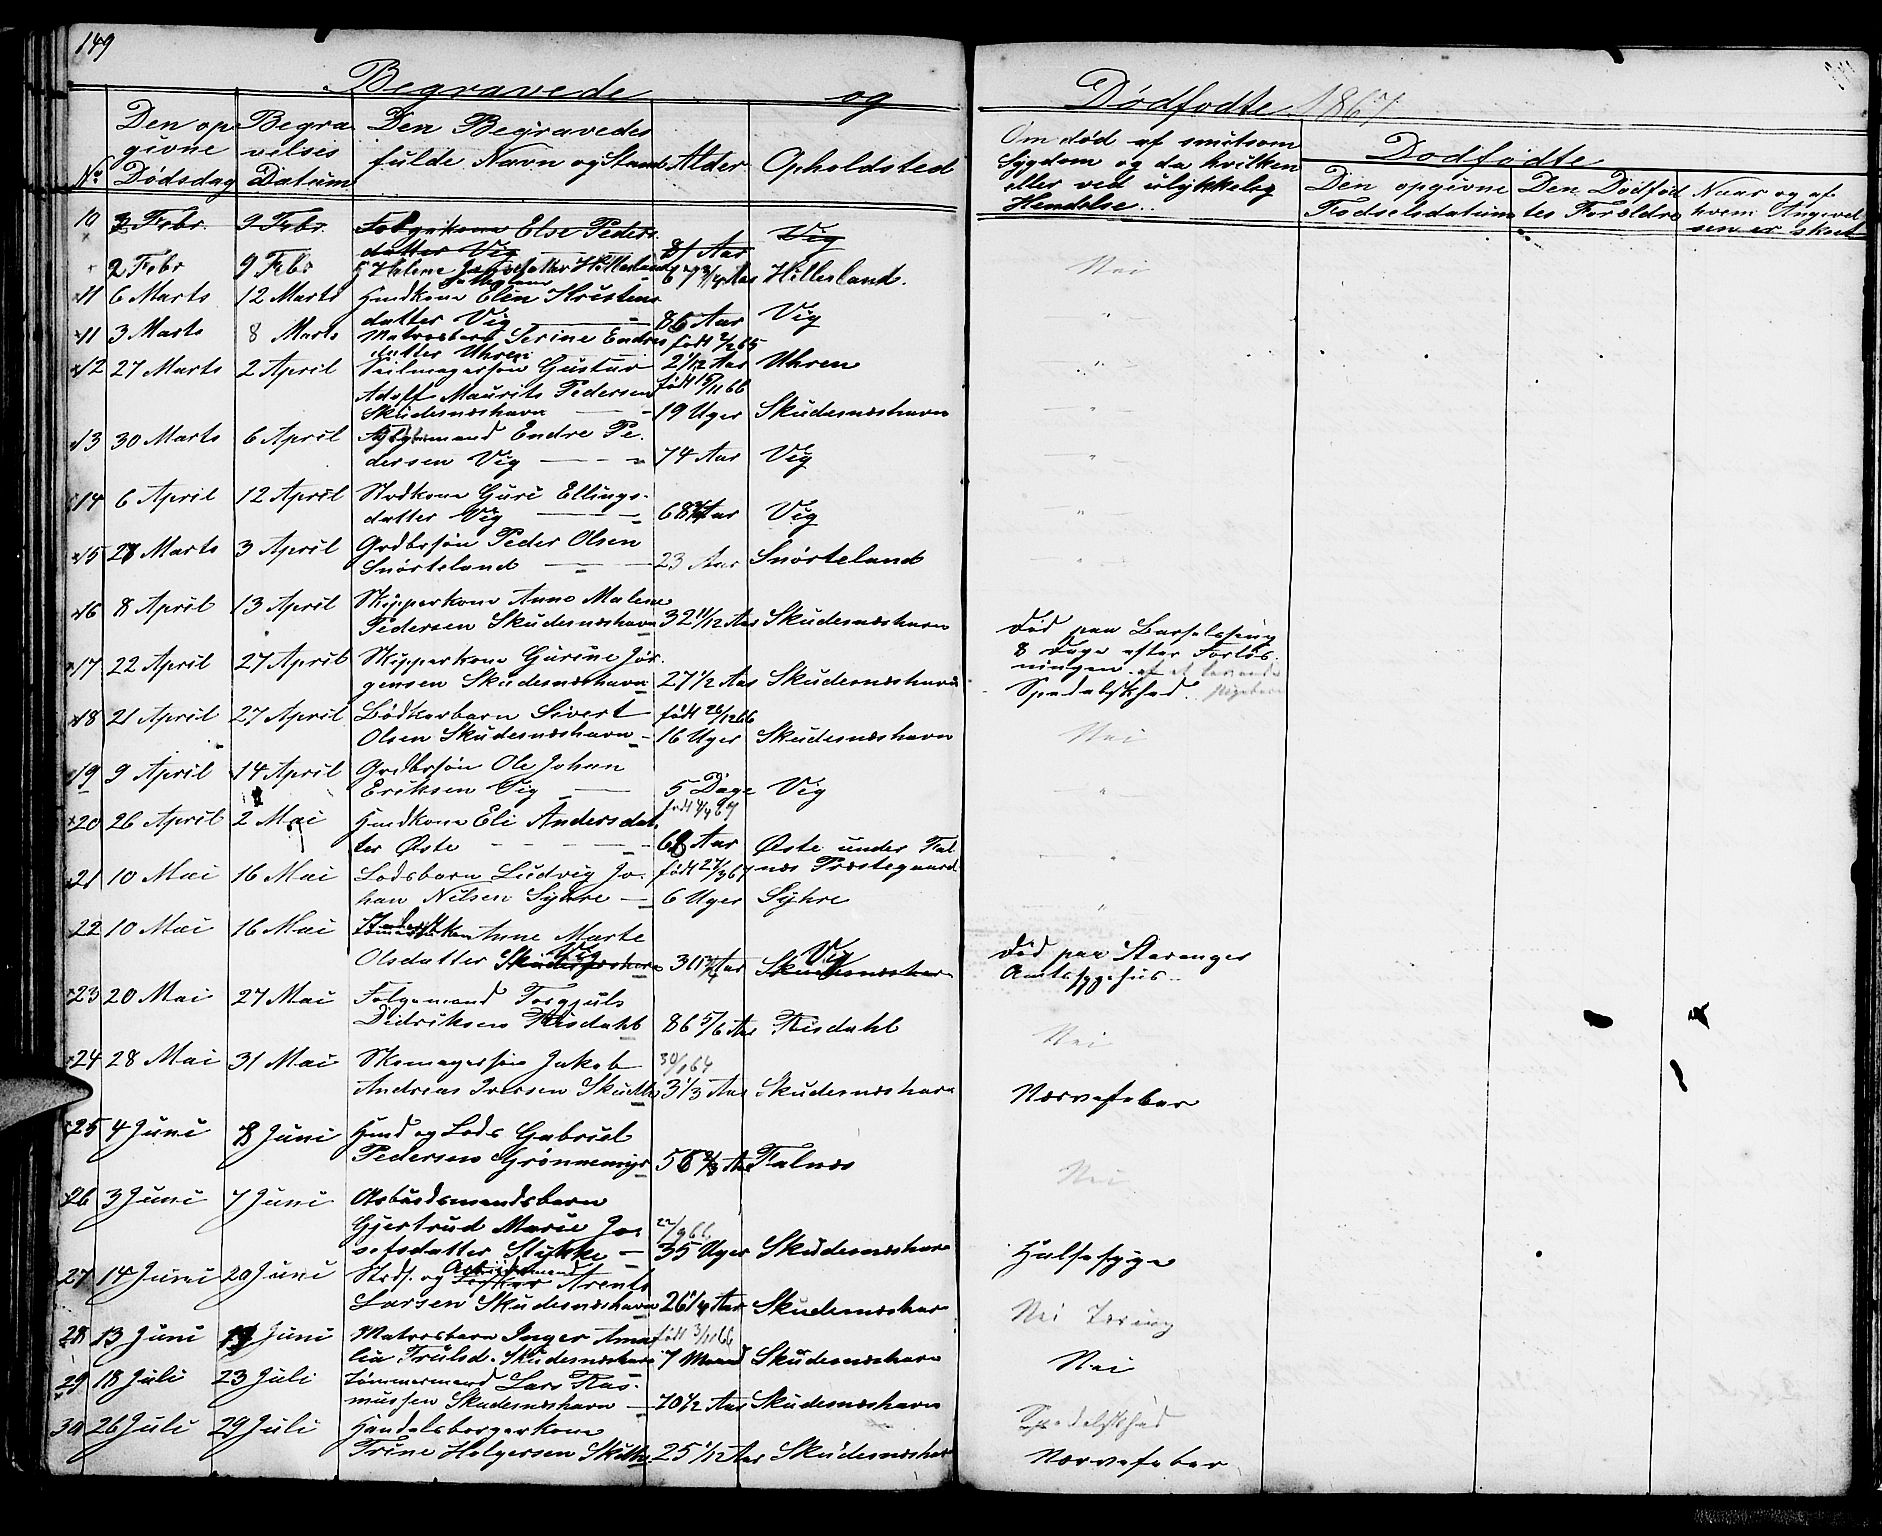 149
Begravede og
Dødfødte 1867
No
Den op
givne
Dødsdag
Begra
velses
Datum
Den Begravedes
fulde Navn og Stand
Alder
Opholdsted
Om død af smitsom
Sygdom og da hvilken
eller ved ulykkelig
Hendelse.
Dodfødte
Den opgivne
Fødselsdatum
Den Dødfød
tes Forældre
Naar og af
hvem Angivel
sen er skeet
10 2 Febr. 9 Febr. Folgekone Else Peders
datter Vig 81 Aar Vig
2 Febr 9 Febr Helene Hillesland 67 3/4 Aar Hillesland. Nei
11 6 Marts 12 Marts Husdkone Elin Kristens
datter Vig 86 Aar Vig "
11 3 Marts 8 Marts Matrosbarn Serine Endres født 2/2 65
datter Uhren 2 1/12 Aar Uhren "
12 27 Marts 2 April Seilmagersøn Gustav født 15/11 66
Adolf Maurits Pedersen
Skudesneshavn 19 Uger Skudesneshavn "
13 30 Marts 6 April Folgemand Endre Pe
dersen Vig 74 Aar Vig "
14 6 April 12 April Stodkone Guri Ellings
datter Vig 68 Aar Vig "
15 28 Marts 3 April Grdbrsøn Peder Olsen
Snørteland 23 Aar Snørteland "
16 8 April 13 April Skipperkone Anne Malene
Pedersen Skudesneshavn 32 11/12 Aar Skudesneshavn Død paa Barselseng
8 Dage efter Forløs
ningen af et levende Pigebarn
17 22 April 27 April Skipperkone Gurine Jør
gensen Skudesneshavn 27 1/2 Aar Skudesneshavn Spedalskhed.
18 21 April 27 April Bødkerbarn Sivert født 26/12 66
Olsen Skudesneshavn 16 Uger Skudesneshavn Nei
19 9 April 14 April Grdbrsøn Ole Johan
Eriksen Vig 5 Dage Vig "
født 4/4 67
20 26 April 2 Mai Husdkone Eli Andersdat
ter Øste 68 Aar Øste under Fal
nes Præstegaard "
21 10 Mai 16 Mai Lodsbarn Ludvig Jo født 27/3 67
han Nilsen Syhre 6 Uger Syhre "
22 10 Mai 16 Mai Anne Marte
Olsdatter Vig Skudesneshavn Aar Vig Skudesneshavn Død paa Stavanger
Amtssygehus
23 20 Mai 27 Mai Folgemand Torgjuls
Didriksen Risdahl 86 5/6 Aar Risdahl Nei
24 28 Mai 31 Mai Skomagersøn Jakob 30/1 64
Andreas Iversen Skudhn 3 1/3 Aar Skudesneshavn Nervefeber
25 4 Juni 8 Juni Husd og Lods Gabriel
Pedersen Grønnemyr 56 2/3 Aar Falnes Nei
26 3 Juni 7 Juni Arbeidsmandsbarn
Gjertrud Marie Jo 22/9 66
sefsdatter Stykke 35 Uger Skudesneshavn Halsesyge
27 14 Juni 20 Juni Strds. og Arbeidsmand Arent
Larsen Skudesneshavn 26 1/4 Aar Skudesneshavn Nei Tæring
28 13 Juni 19 Juni Matrosbarn Inger Ama født 3/11 66
lia Trulsd. Skudesneshavn 7 Maaned Skudesneshavn Nei
29 18 Juli 23 Juli Tømmermand Lars Ras
mussen Skudesneshavn 70 1/2 Aar Skudesneshavn Spedalskhed
30 26 Juli 29 Juli Handelsborgerkone
Trine Holgersen Skudhn 25 1/12 Aar Skudesneshavn Nervefeber